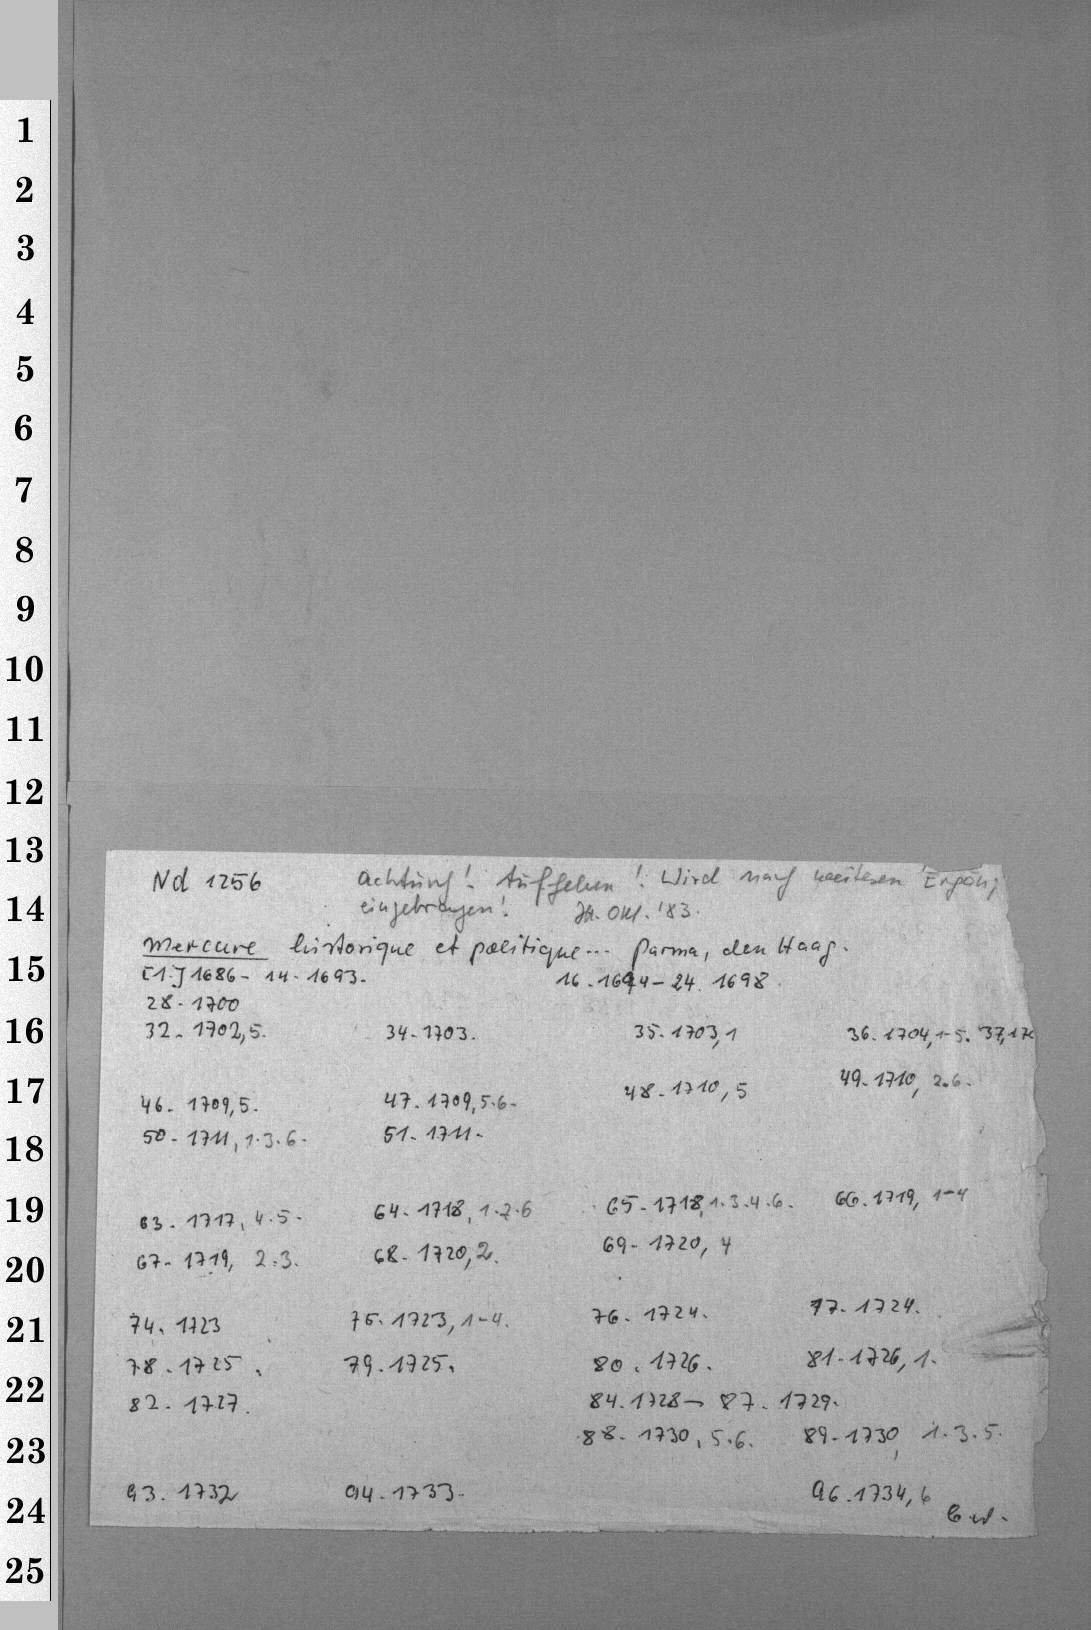 1
2
3
4
5
6
7
8
9
10
11
12
13
14
15
16
17
18
19
20
21
22
23
24
25
Nd 1256 Achtung! Aufheben! Wird nach weiteren
eingebrogen! Okt. '83.
Mercure historique et politique... Parma, den Haag.
[1.] 1686 - 14. 1693. 16. 1694 - 24. 1698.
28. 1700
32. 1702,5. 34. 1703. 35. 1703,1 36. 1704,1-5. 37,170
46. 1709,5. 47. 1709,5.6. 48. 1710,5 49. 1710, 2.6.
50. 1711, 1.3.6. 51. 1711.
63. 1717, 4.5. 64. 1718, 1.2.6 65. 1718, 1.3.4.6. 66. 1719, 1-4
67. 1719, 2.3. 68. 1720,2. 69. 1720, 4
74. 1723 75. 1723, 1-4. 76. 1724. 77. 1724.
78. 1725. 79. 1725. 80. 1726. 81. 1726, 1.
82. 1727. 84. 1728 - 87. 1729.
88. 1730, 5.6. 89. 1730, 1.3.5.
93. 1732 94. 1733. 96. 1734, 6